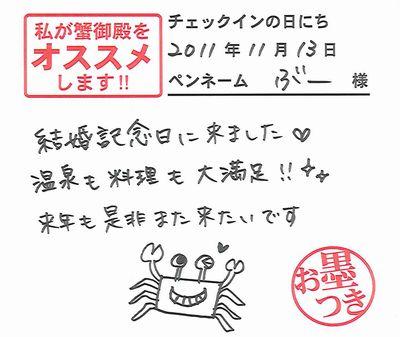 私が蟹御殿を
オススメ
します!!
チェックインの日にち
2011年11月13日
ペンネーム ぶー 様
結婚記念日に来ました♡
温泉も料理も大満足!!
来年も是非また来たいです
お墨つき